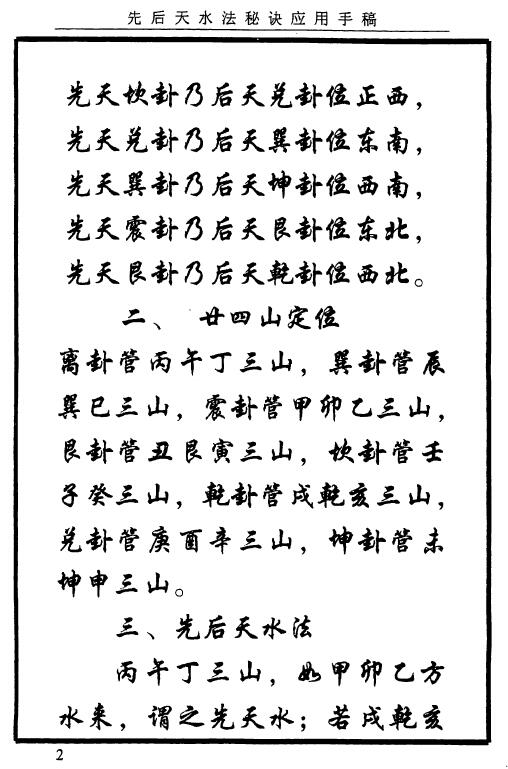 先后天水法秘诀应用手稿
先天坎卦乃后天兑卦位正西，
先天兑卦乃后天巽卦位东南，
先天巽卦乃后天坤卦位西南，
先天震卦乃后天艮卦位东北，
先天艮卦乃后天乾卦位西北。
二、 廿四山定位
离卦管丙午丁三山，巽卦管辰
巽巳三山，震卦管甲卯乙三山，
艮卦管丑艮寅三山，坎卦管壬
子癸三山，乾卦管戌乾亥三山，
兑卦管庚酉辛三山，坤卦管未
坤申三山。
三、先后天水法
丙午丁三山，如甲卯乙方
水来，谓之先天水；若戌乾亥
2